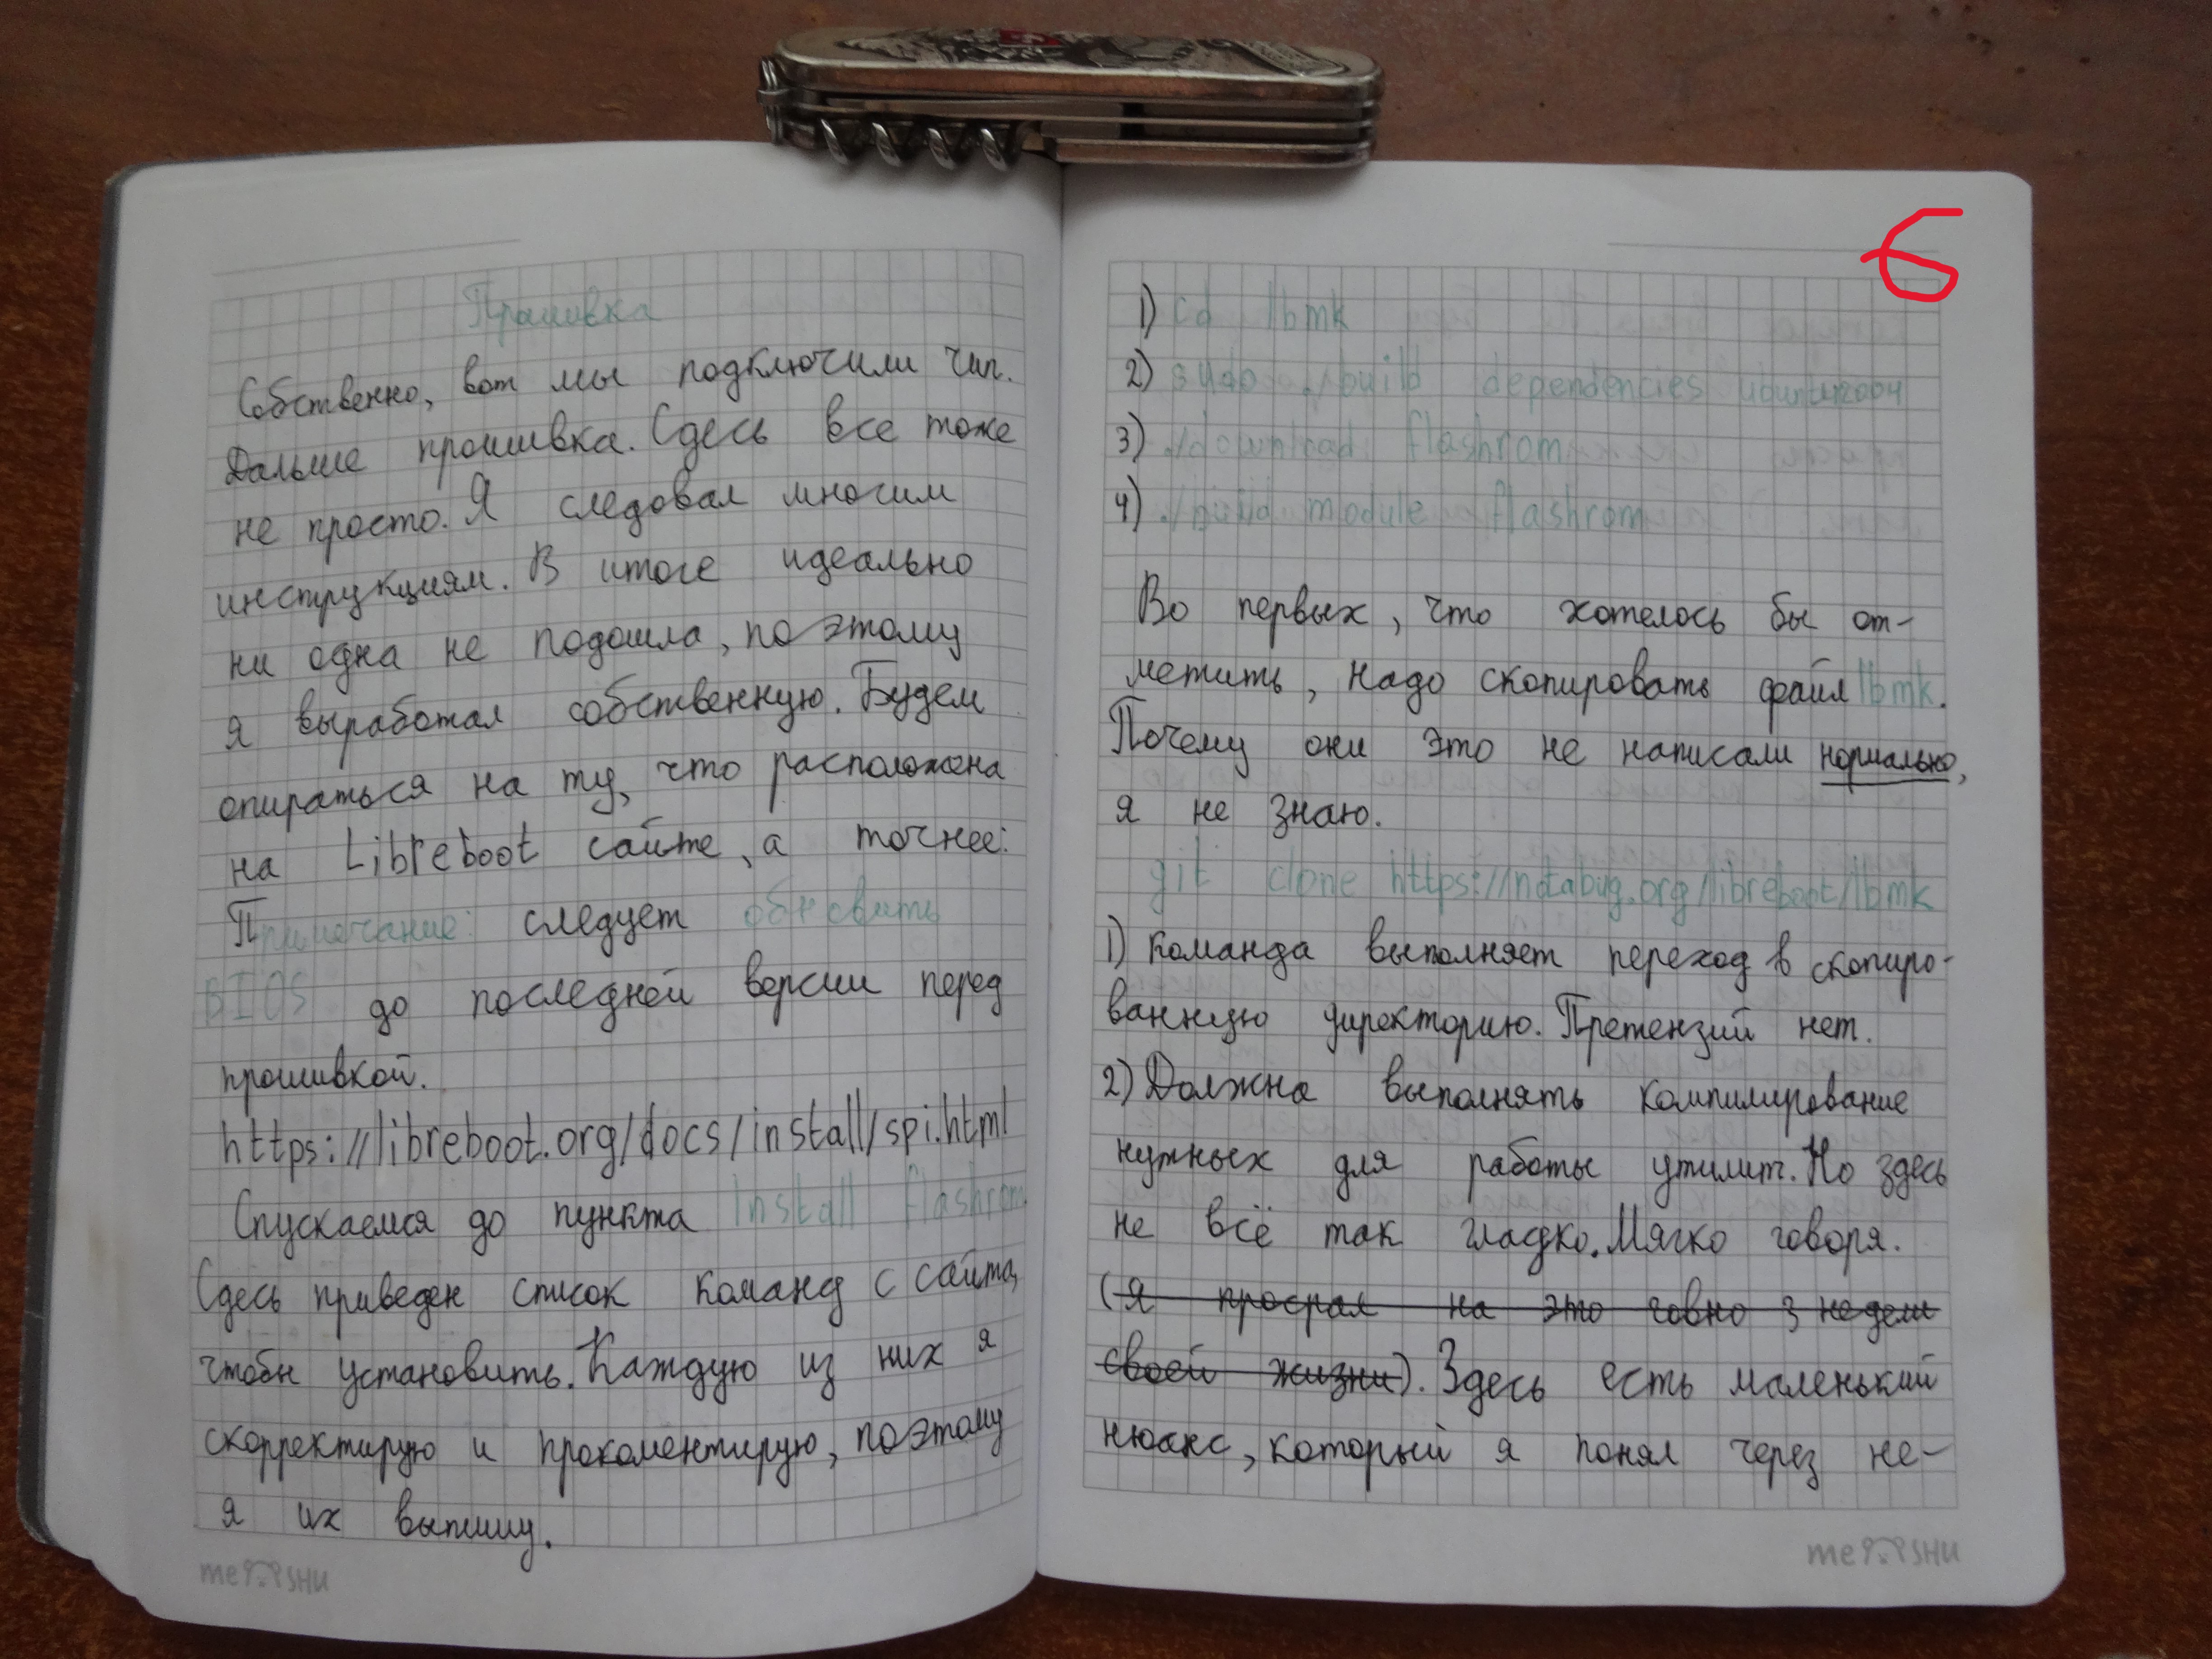 Прошивка
Собственно, вот мы подключили чип.
Дальше прошивка. Сдесь все тоже
не просто. Я следовал многим
инструкциям. В итоге идеально
ни одна не подошла, поэтому
я выработал собственную. Будем
опираться на ту, что расположена
на Libreboot сайте, а точнее:
Примечание: следует обновить
BIOS до последней версии перед
прошивкой.
https://libreboot.org/docs/install/spi.html
Спускаемся до пункта Install flashrom
Сдесь приведен список команд с сайта,
чтобы установить. Каждую из них я
скорректирую и прокоментирую, поэтому
я их выпишу.
me?.?SHU
6
1) cd lbmk
2) sudo ./build dependencies ubuntu2004
3) ./download flashrom
4) ./build module flashrom
Во первых, что хотелось бы от-
метить, надо скопировать файл lbmk.
Почему они это не написали нормально,
я не знаю.
git clone https://notabug.org/libreboot/lbmk
1) Команда выполняет переход в скопиро-
ванную директорию. Претензий нет.
2) Должна выполнять компилирование
нужных для работы утилит. Но здесь
не всё так гладко. Мягко говоря.
(я просрал на это говно 3 недели
своей жизни). Здесь есть маленький
нюанс, который я понял через не-
me?.?SHU